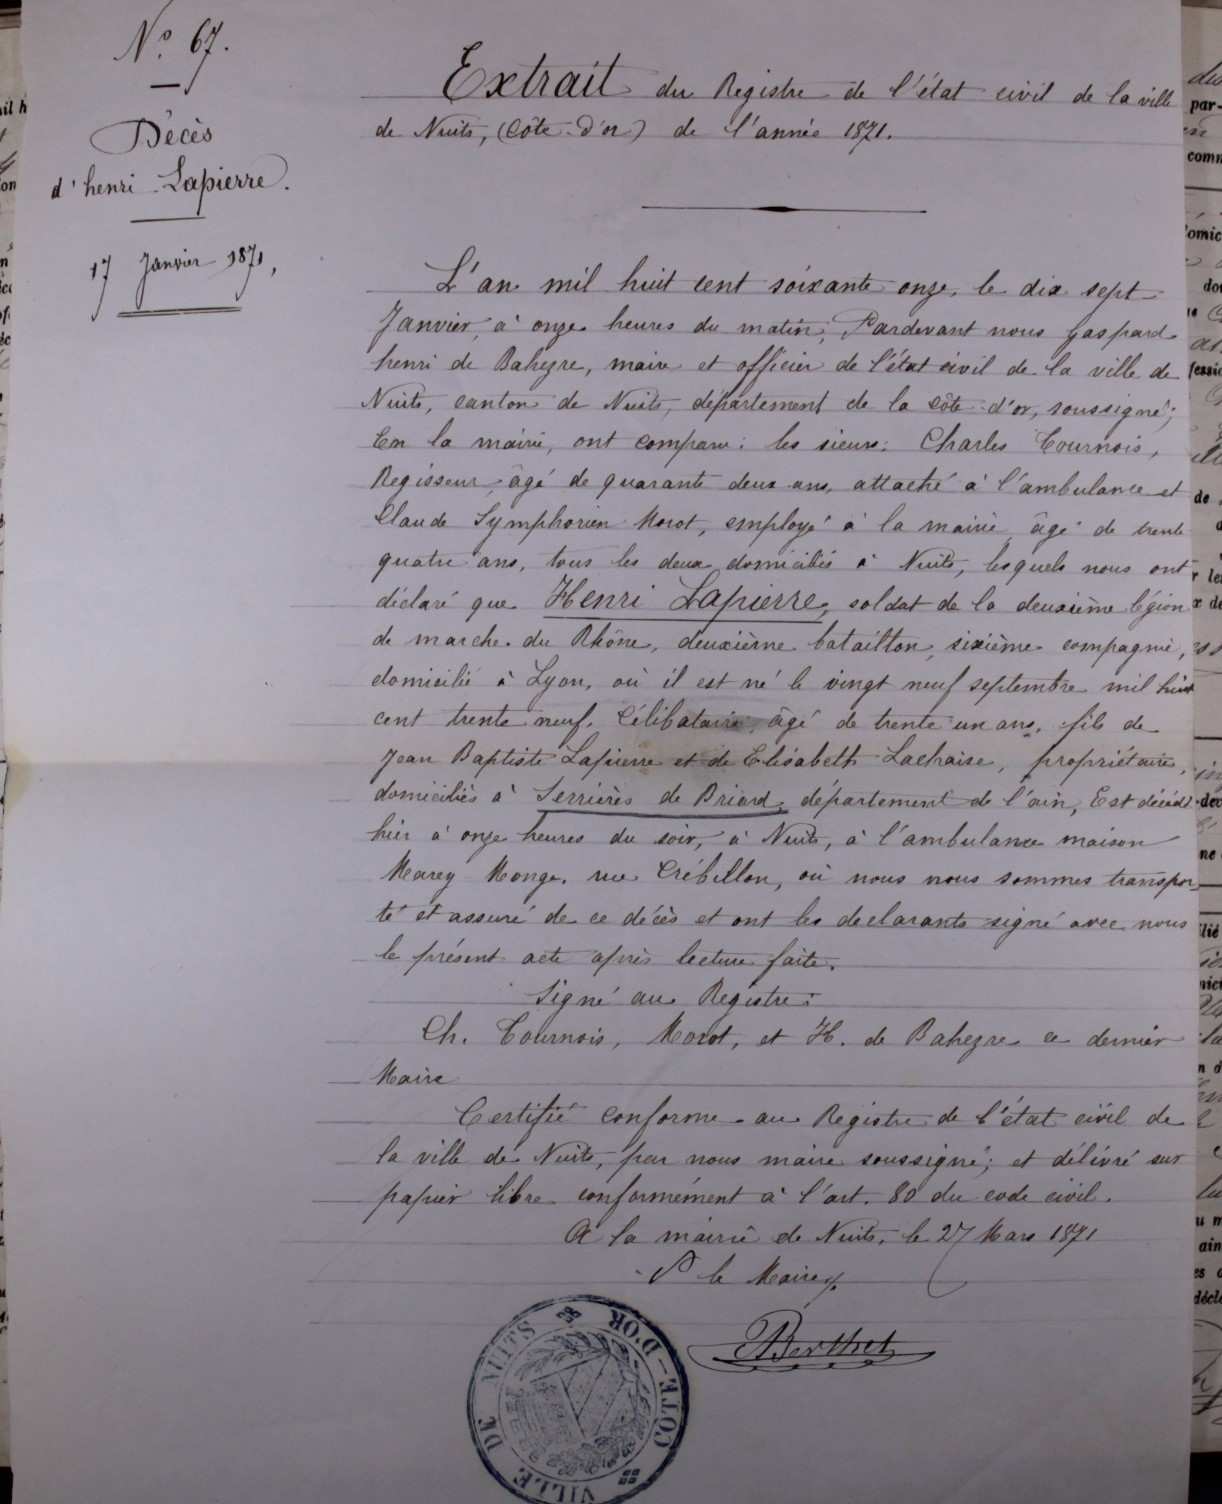 N.o 67.
Décès
d'henri Lapierre.
17 Janvier 1871,
Extrait du Registre de l'état civil de la ville
de Nuits, (Côte-D'or) de l'année 1871.
L'an mil huit cent soixante onze, le dix sept
Janvier, à onze heures du matin; Pardevant nous gaspard
henri de Bahezre, maire et officier de l'état civil de la ville de
Nuits, canton de Nuits, département de la côte-d'or, soussigné;
En la mairie, ont comparu: les sieurs: Charles Tournois,
Regisseur, âgé de quarante deux ans, attaché à l'ambulance et
Claude Symphorien Morot, employé à la mairie âgé de trente
quatre ans, tous les deux domiciliés à Nuits, lesquels nous ont
déclaré que Henri Lapierre, soldat de la deuxième légion
de marche du Rhône, deuxième bataillon, sixième compagnie,
domicilié à Lyon, où il est né le vingt neuf septembre mil huit
cent trente neuf, Célibataire, âgé de trente un ans, fils de
Jean Baptiste Lapierre et de Elisabeth Lachaise, propriétaires,
domiciliés à Serrières de Briord, département de l'ain, Est décédé
hier à onze heures du soir, à Nuits, à l'ambulance maison
Marey Monge, rue Crébillon, où nous nous sommes transpor-
té et assuré de ce décès et ont les declarants signé avec nous
le présent acte après lecture faite.
Signé au Registre:
Ch. Tournois, Morot, et H. de Bahezre ce dernier
Maire
Certifié conforme au Registre de l'état civil de
la ville de Nuits, par nous maire soussigné; et délivré sur
papier libre conformément à l'art. 80 du code civil.
A la mairie de Nuits, le 27 Mars 1871
P le Maire
Berthet
VILLE DE NUITS CÔTE-D'OR